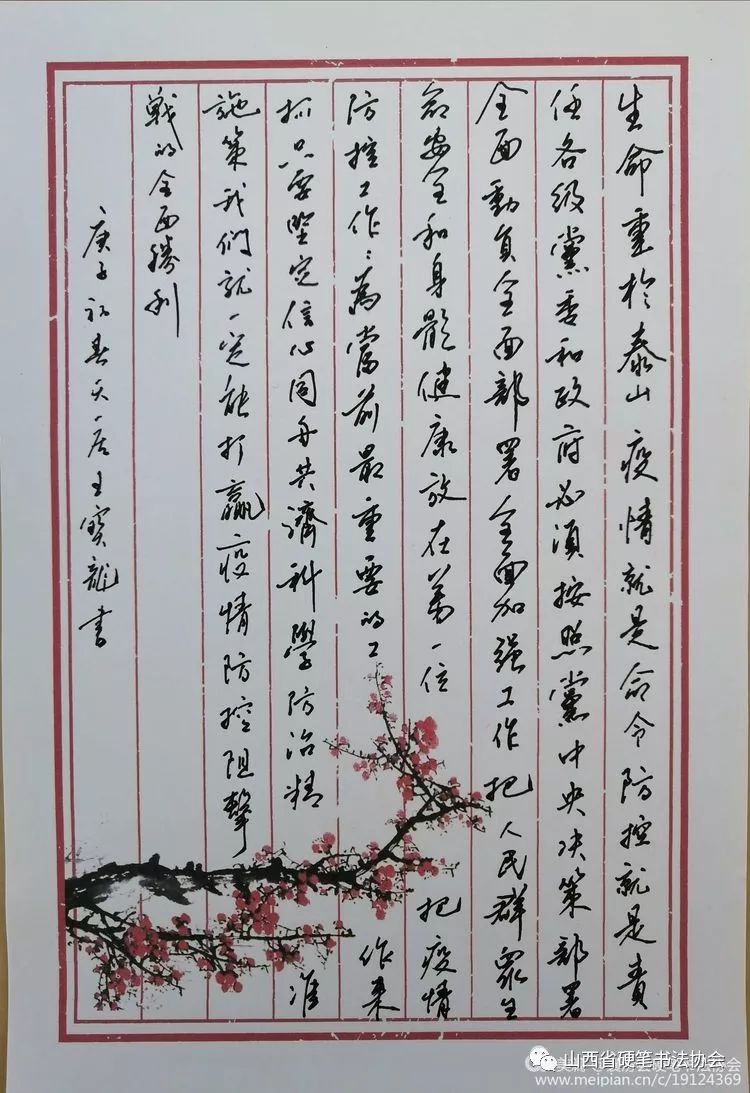 生命重於泰山疫情就是命令防控就是責
任各級黨委和政府必須按照黨中央决策部署
全面動員全面部署全面加强工作把人民群眾生
命安全和身體健康放在第一位把疫情
防控工作作為當前最重要的工作来
抓只要坚定信心同舟共濟科學防治精准
施策我們就一定能打贏疫情防控阻擊
戰的全面勝利
庚子初春天一居王寶龍書
山西省硬笔书法协会
www.meipian.cn/c/19124369